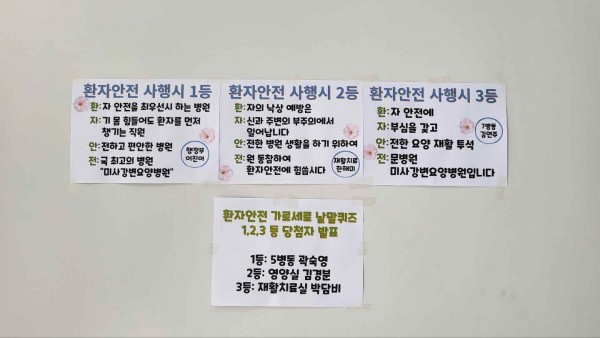 환자안전 사행시 1등
환: 자 안전을 최우선시 하는 병원
자: 기 몸 힘들어도 환자를 먼저
챙기는 직원
안: 전하고 편안한 병원
전: 국 최고의 병원
"미사강변요양병원"
행정부
이진아
환자안전 사행시 2등
환: 자의 낙상 예방은
자: 신과 주변의 부주의에서
일어납니다
안: 전한 병원 생활을 하기 위하여
전: 원 동참하여
환자안전에 힘씁시다
재활치료
한해미
환자안전 사행시 3등
환: 자 안전에
자: 부심을 갖고
안: 전한 요양 재활 투석
전: 문병원
미사강변요양병원입니다
7병동
김연주
환자안전 가로세로 낱말퀴즈
1,2,3 등 당첨자 발표
1등: 5병동 곽숙영
2등: 영양실 김경분
3등: 재활치료실 박담비